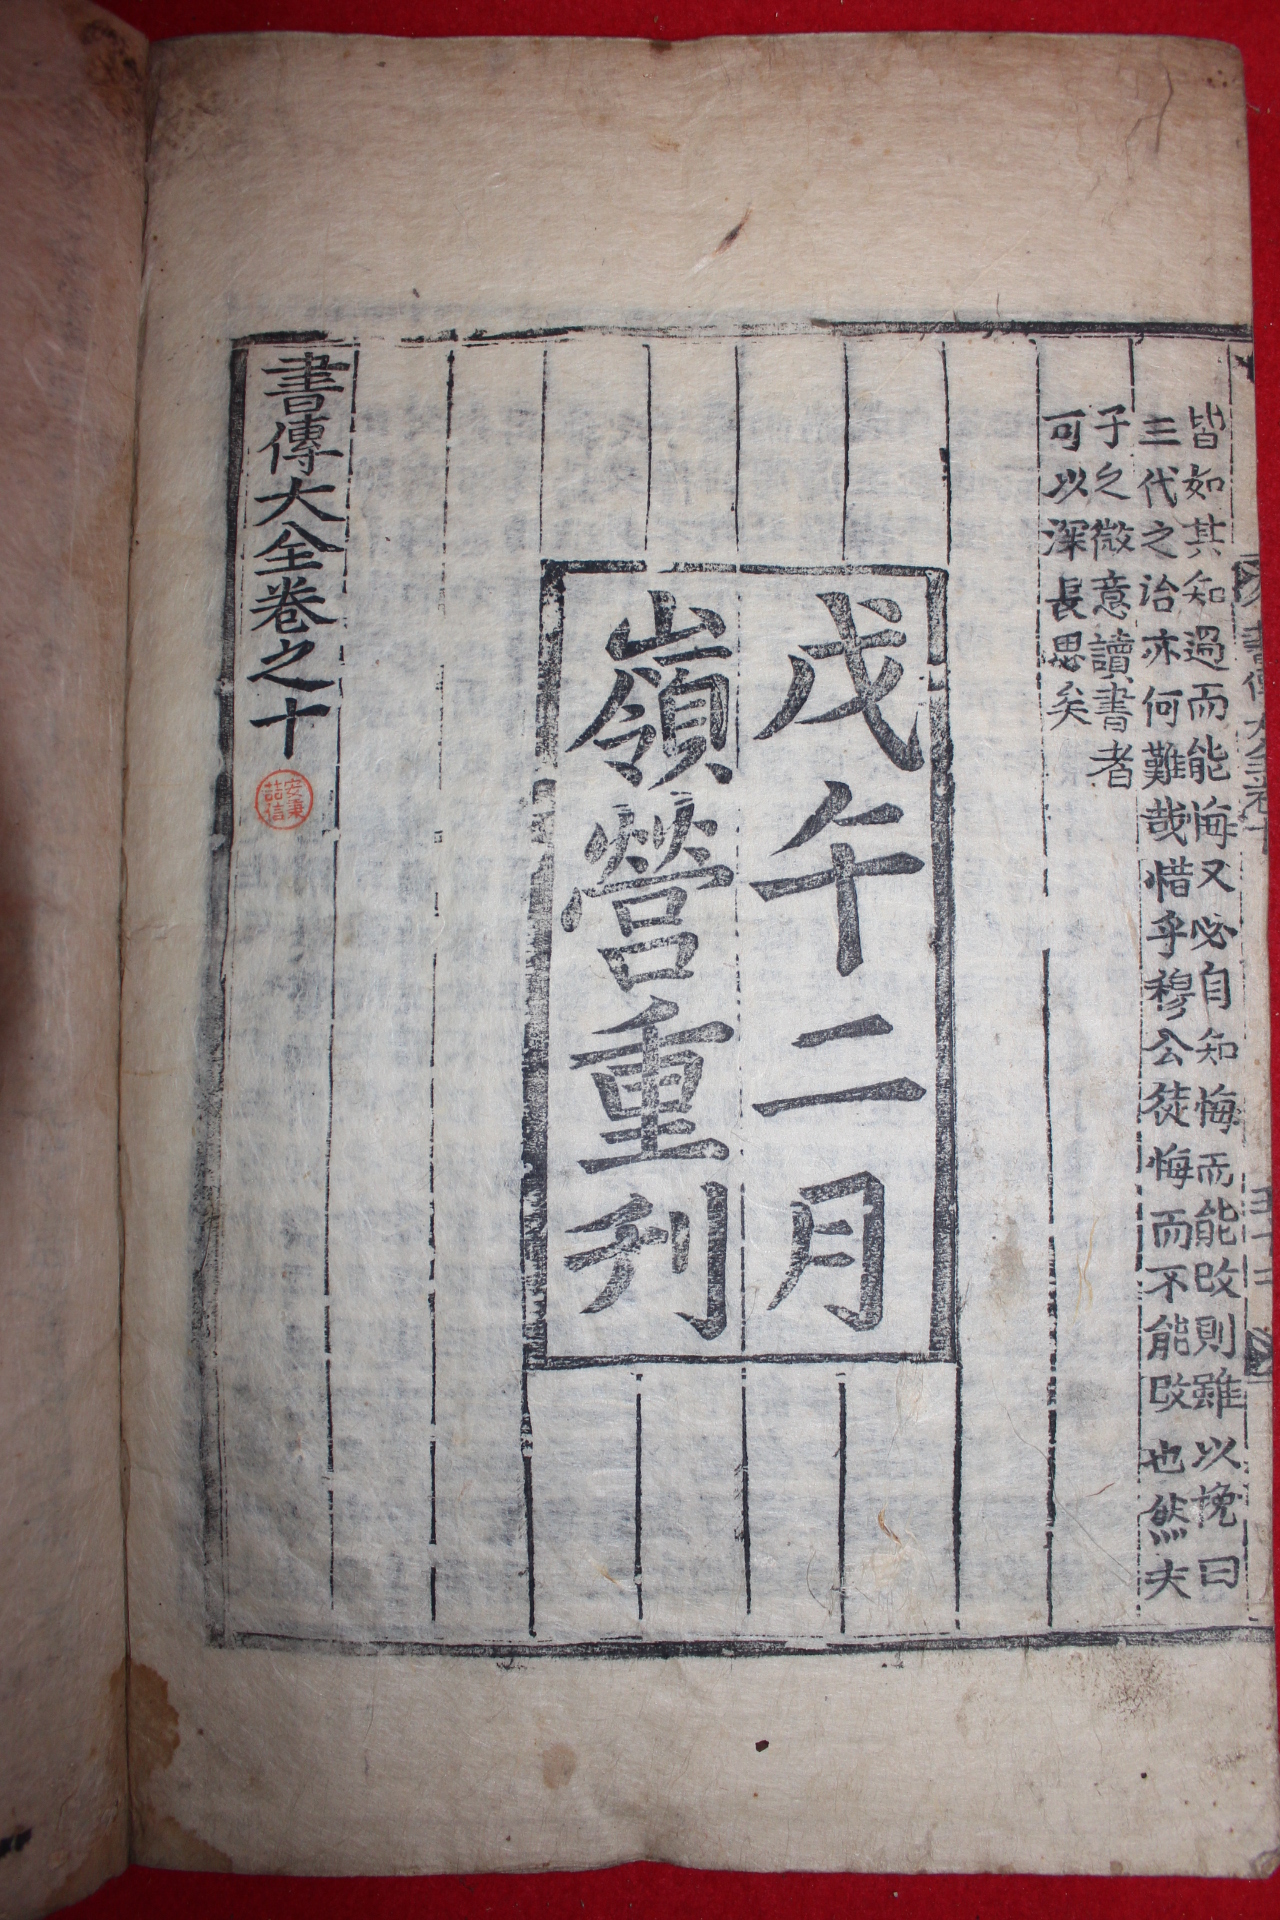 書傳大全卷十
五十二
皆如其知過而能悔又必自知悔而能改則雖以挽曰
三代之治亦何難哉惜乎穆公徒悔而不能改也然夫
子之微意讀書者
可以深長思矣
戊午二月
嶺營重刊
書傳大全卷之十